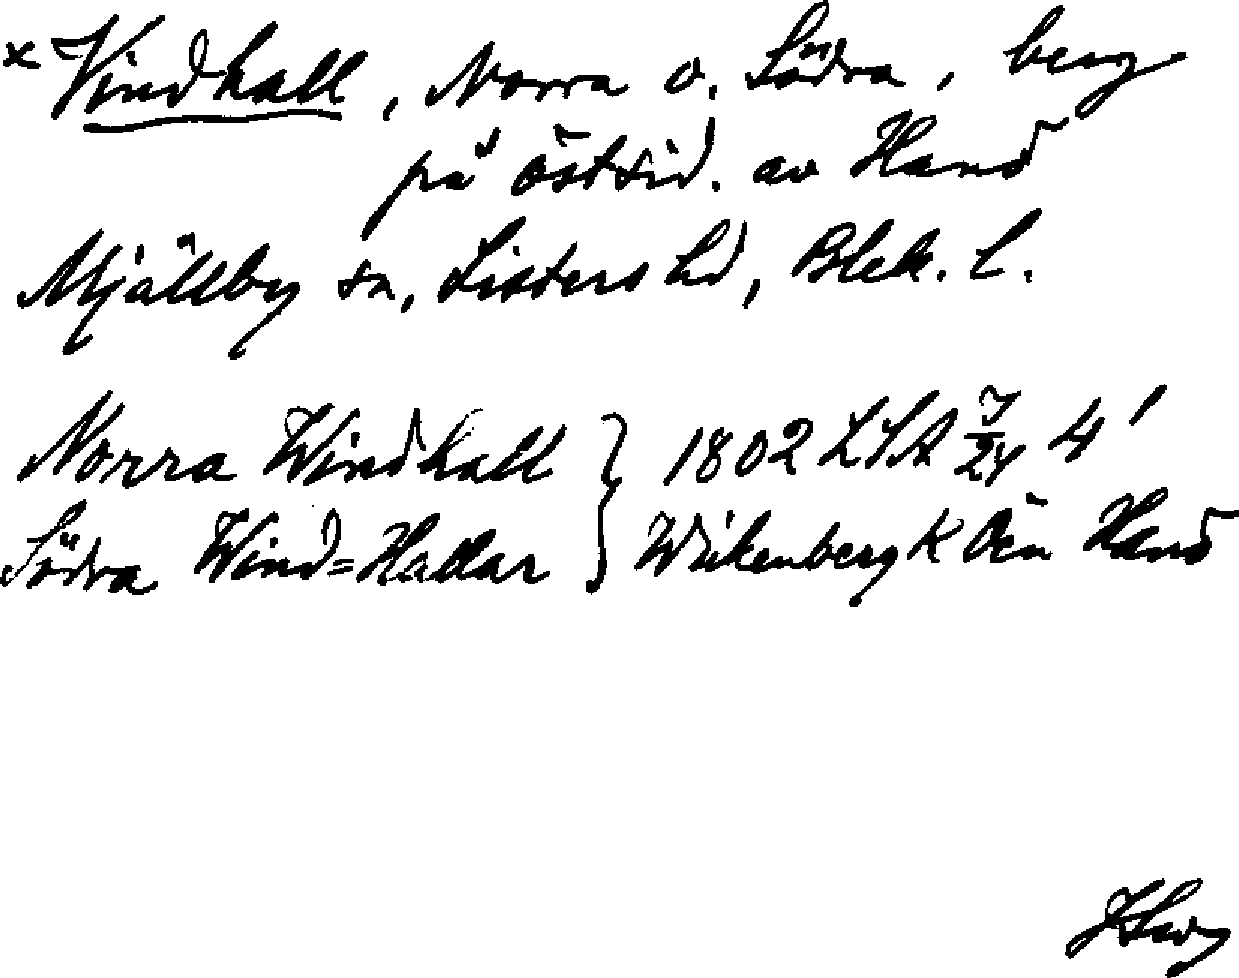 x Vindhall, Norra o. Södra, berg
på östsid. av Hanö
Mjällby sn, Listers hd, Blek. l.
Norra Windhall } 1802 LSA 7/24 4'
Södra Wind=Hallar } Wickenberg K Ön Hanö